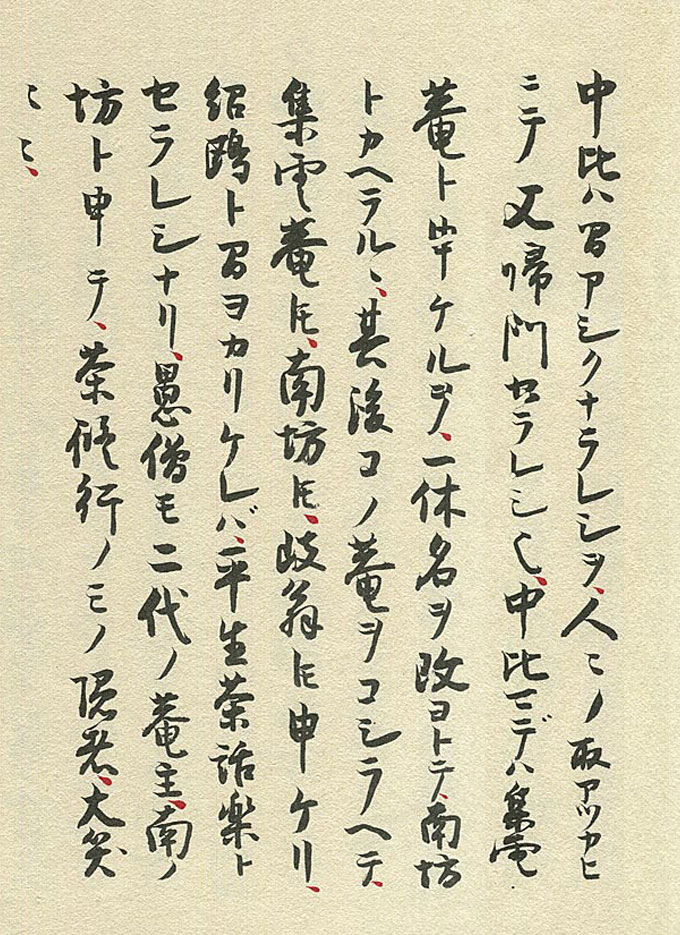 中比ハ間アシクナラレシヲ、人〻ノ取アツカヒ
ニテ又帰門セラレシ也、中比マデハ集雲
菴ト申ケルヲ、一休名ヲ改ヨトテ、南坊
トカヘラルヽ、其後コノ菴ヲコシラヘテ、
集雲菴𪜈、南坊𪜈、岐翁𪜈申ケリ、
紹鴎ト間ヨカリケレバ、平生茶話楽ト
セラレシナリ、愚僧モ二代ノ菴主、南ノ
坊ト申テ、茶修行ノモノ隠者、大笑
〻〻、